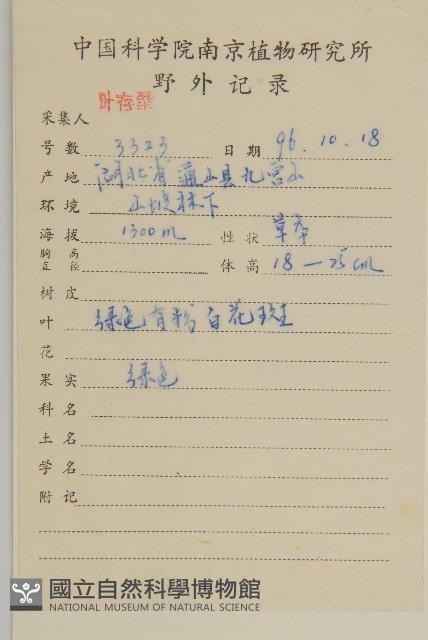 中国科学院南京植物研究所
野外记录
采集人 叶存粟
号数 3323 日期 96.10.18
产地 湖北省通山县九宫山
环境 山坡林下
海拔 1300m 性状 草本
胸高直径 体高 18—25cm
树皮
叶 绿色有粉白花斑
花
果实 绿色
科名
土名
学名
附记
國立自然科學博物館
NATIONAL MUSEUM OF NATURAL SCIENCE